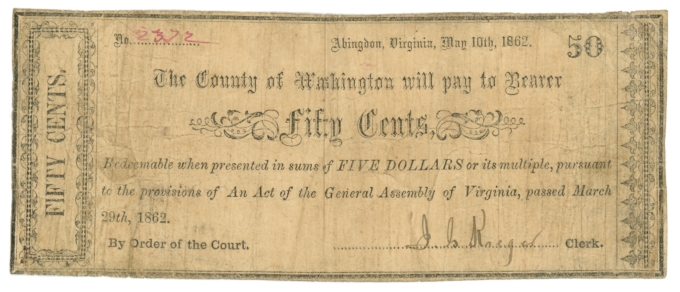 FIFTY CENTS.
No. 2372 Abingdon, Virginia, May 10th, 1862. 50
The County of Washington will pay to Bearer
Fifty Cents,
Redeemable when presented in sums of FIVE DOLLARS or its multiple, pursuant
to the provisions of An Act of the General Assembly of Virginia, passed March
29th, 1862.
By Order of the Court. Clerk.